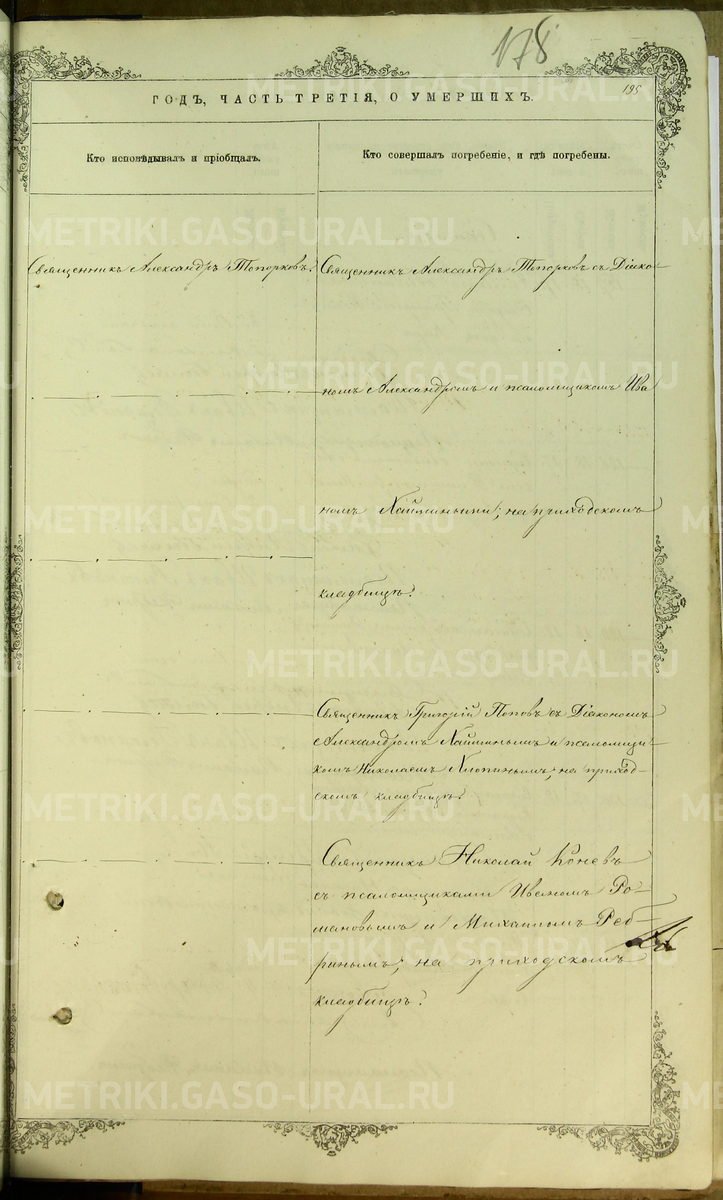 178
195
ГОДЪ, ЧАСТЬ ТРЕТІЯ, О УМЕРШИХЪ.
Кто исповѣдывалъ и пріобщалъ.
Кто совершалъ погребеніе, и гдѣ погребены.
Священникъ Александръ Топорковъ.
Священникъ Александръ Топорковъ съ Діако-
номъ Александромъ и псаломщикомъ Ива
номъ Хаймиными; на приходскомъ
кладбищѣ.
Священникъ Григорій Поповъ съ Діакономъ
Александромъ Хайминымъ и псаломщи
комъ Николаемъ Хлопинымъ; на приход-
скомъ кладбищѣ.
Священникъ Николай Коневъ
съ псаломщиками Иваномъ Ро-
мановымъ и Михаиломъ Реб-
ринымъ; на приходскомъ
кладбищѣ.
METRIKI.GASO-URAL.RU